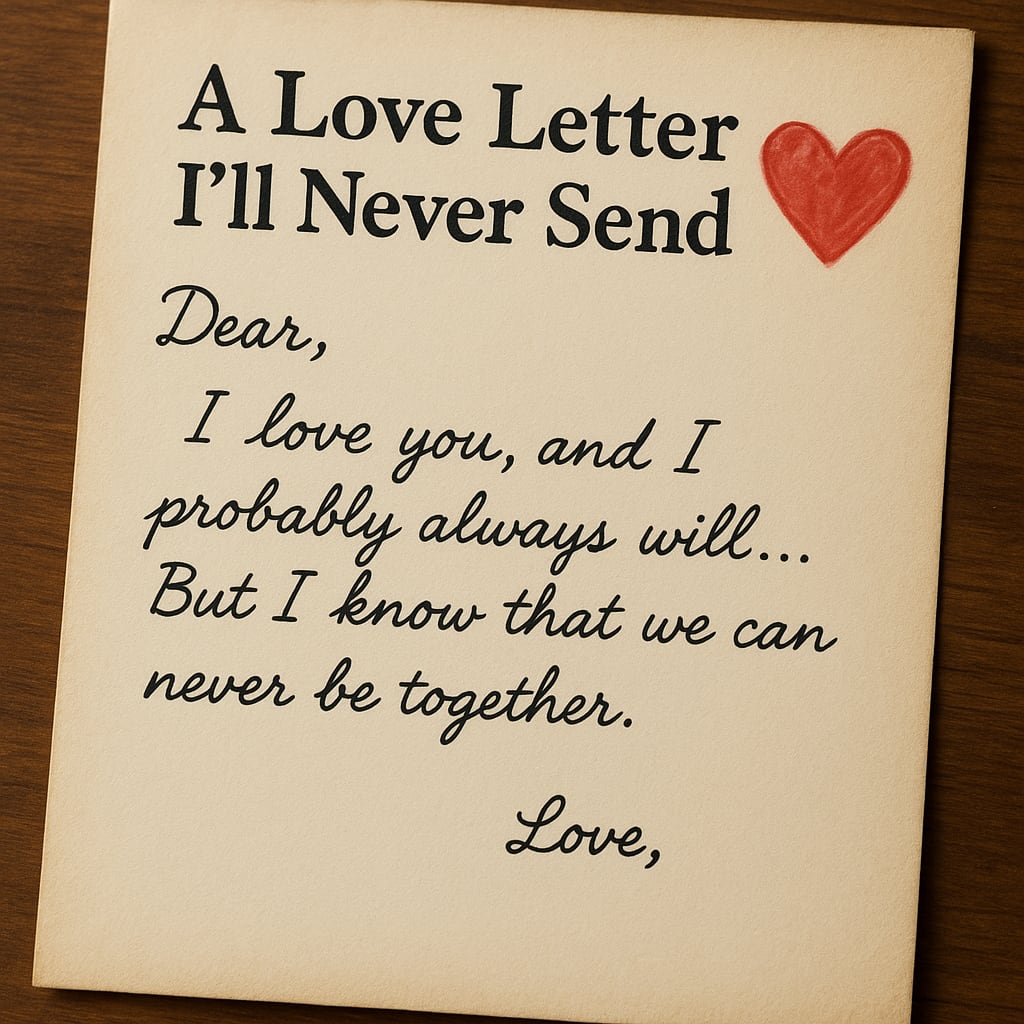 A Love Letter
I'll Never Send
Dear,
I love you, and I
probably always will...
But I know that we can
never be together.
Love,